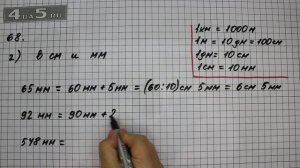 4DA5.RU
68.
2) В см и мм
1км = 1000м
1м = 10дм = 100см
1дм = 10см
1см = 10мм
65мм = 60мм + 5мм = (60:10)см 5мм = 6см 5мм
92мм = 90мм + 2
548мм =